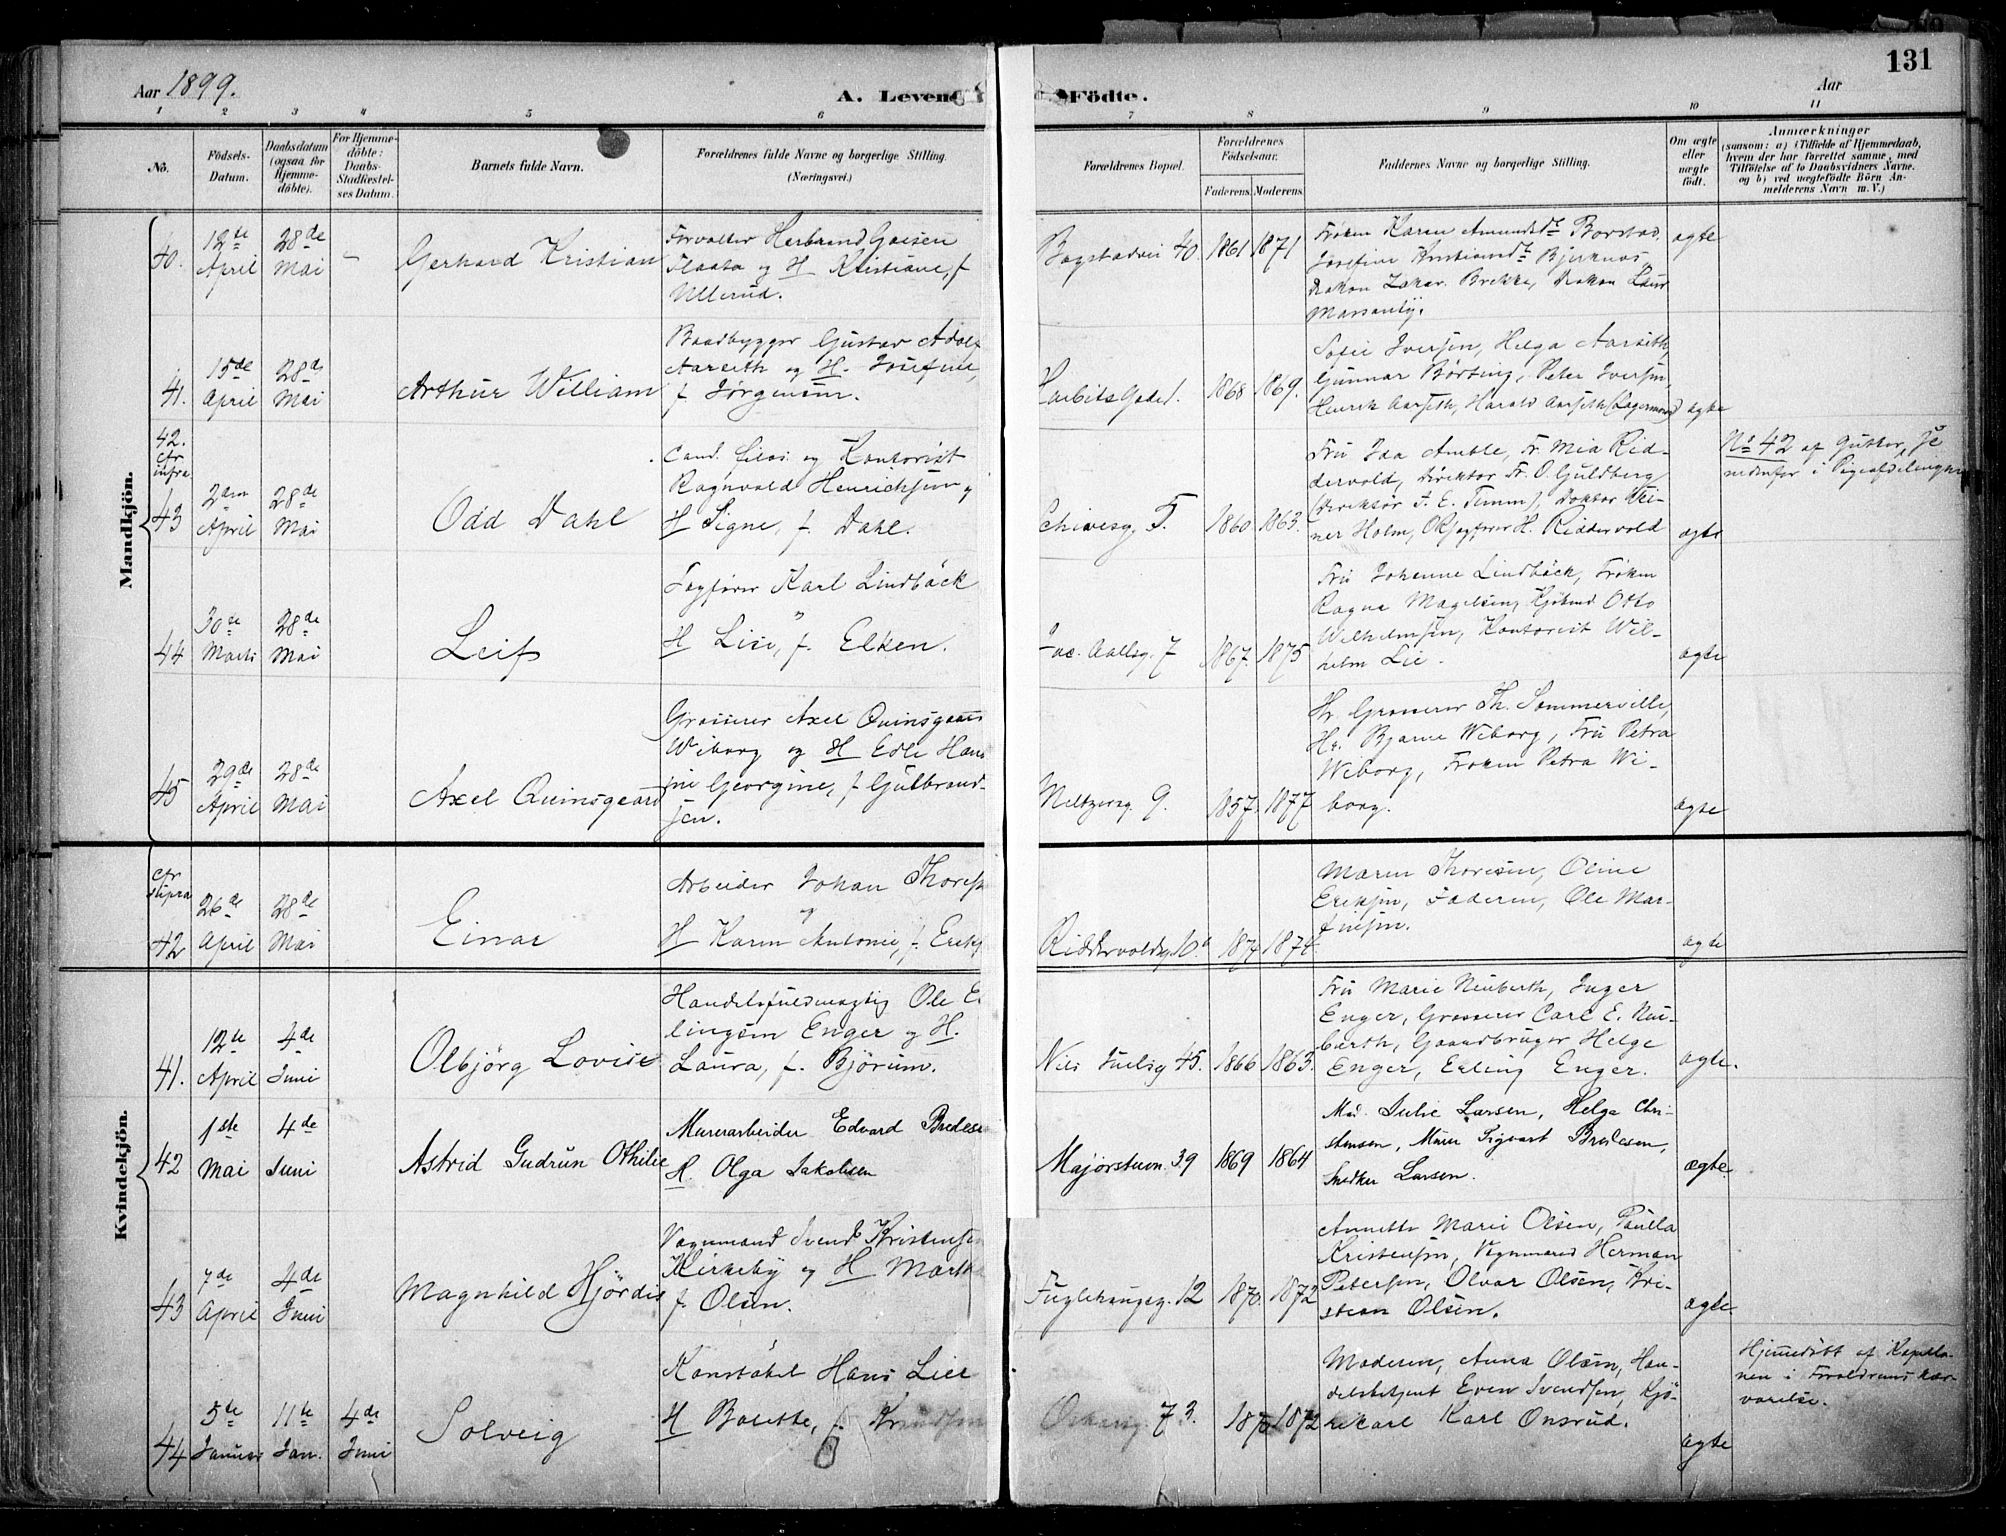 131
Aar 1899.
A. Levende Födte.
Aar
1 2 3 4 5 6 7 8 9 10 11
No.
Födsels-Datum.
Daabsdatum (ogsaa for Hjemmedöbte).
For Hjemmedöbte: Daabs-Stadfæstelses Datum.
Barnets fulde Navn.
Forældrenes fulde Navne og borgerlige Stilling. (Næringsvei.)
Forældrenes Bopæl.
Forældrenes Födselsaar.
Faderens. Moderens.
Faddernes Navne og borgerlige Stilling.
Om ægte eller uægte födt.
Anmærkninger
(saasom: a) i Tilfælde af Hjemmedaab, hvem der har forrettet samme, med Tilföielse af to Daabsvidners Navne. og b) ved uægtefödte Börn Anmelderens Navn m. V.)
Mandkjön.
40. 12te April 28de Mai - Gerhard Kristian
Forvalter Herbrand Goesen
Flaata og H Kristiane, f
Ullerud.
Bogstadvei 40. 1861 1871
Frøken Karen Amundsdt Borstad,
Josefine Kristiansdt Bjerknes,
Hakon Zakar. Brekke, Hakon Laur
Marsanby.
ægte
41. 15de April 28de Mai Arthur William
Baadbygger Gustav Adolf
Aarseth og H. Josefine,
f Jørgensen.
Harbitz Gade 1. 1868 1869.
Sofie Iversen, Helga Aarseth,
Gunnar Børting, Peter Iversen,
Henrik Aarseth, Harald Aarseth (Lagermand)
ægte
42. cfr infra
No 42 af Gutter, se
nedenfor i Pigeafdelingen
43 2den April 28de Mai Odd Dahl
Cand. filos. og Kontorist
Ragnvald Henrichsen og
H Signe, f. Dahl.
Schivesg. 5. 1860 1863.
Fru Ida Amble, Fr. Mia Rid-
dervold, Direktør Fr. O. Guldberg
(Direktør F. E. Timm), Doktor Ei-
ner Holm, Oksefører H. Riddervold
ægte
44 30te Marts 28de Mai Leif
Togfører Karl Lindbäck
og
H Lise, f. Elken.
Jac. Aallsg. 7 1867. 1875
Fru Johanne Lindbäck, Frøken
Ragna Magelsen, Kjøbmd. Otto
Wilhelmsen, Kontorist Wil-
helm Lie.
ægte
45 29de April 28de Mai Axel Quinsgaard
Grosserer Axel Quinsgaard
Wiborg og H Edle Han
sine Georgine, f Gulbrand-
sen.
Meltzersg. 9. 1857. 1877
Hr. Grosserer Th. Sommerville,
Hr. Bjarne Weborg, Fru Petra
Weborg, Frøken Petra Wi-
borg.
ægte
cfr supra
42 26de April 28de Mai Einar
Arbeider Johan Thores
og
H Karen Antonie, f. Eriks
Riddervoldsg. 10b 1874 1874.
Maren Thoresen, Oline
Eriksen, Faderen, Ole Mar-
tinsen.
ægte
Kvindekjön.
41. 12te April 4de Juni Olbjörg Lovise
Handelsfuldmægtig Ole E
lingsen Enger og H.
Laura, f. Bjørum.
Nils Juelsg 45. 1866 1863.
Fru Marie Neuberth, Inger
Enger, Grosserer Carl E. Neu-
berth, Gaardbruger Helge
Enger, Erling Enger.
ægte.
42 1ste Mai 4de Juni Astrid Gudrun Othilie
Murerarbeider Edvard Bredese
H. Olga Jakobsen
Majorstuen. 39 1869 1864
Mad. Julie Larsen, Helga Chri-
stensen, Murer Sigvart Bredesen,
Snedker Larsen.
ægte.
43 7de April 4de Juni Magnhild Hjördis
Vognmand Svend Kristensen
Kirkeby og H Marth
f. Olsen.
Fuglehaugsg. 12 1870. 1872
Annette Marie Olsen, Paulla
Kristensen, Vognmand Herman
Petersen, Olvar Olsen, Kri-
stian Olsen.
ægte
44 5te Januar 11te Jan. 4de Juni Solveig
Konstabel Hans Lier
H Bolette, f. Knudsen
73. 1870 1872
Moderen, Anna Olsen, Han-
delsbetjent Even Svendsen, Kjö-
rekarl Karl Onsrud.
ægte
Hjemmedøbt af Kapella-
nen i Forældrenes Nær-
værelse.